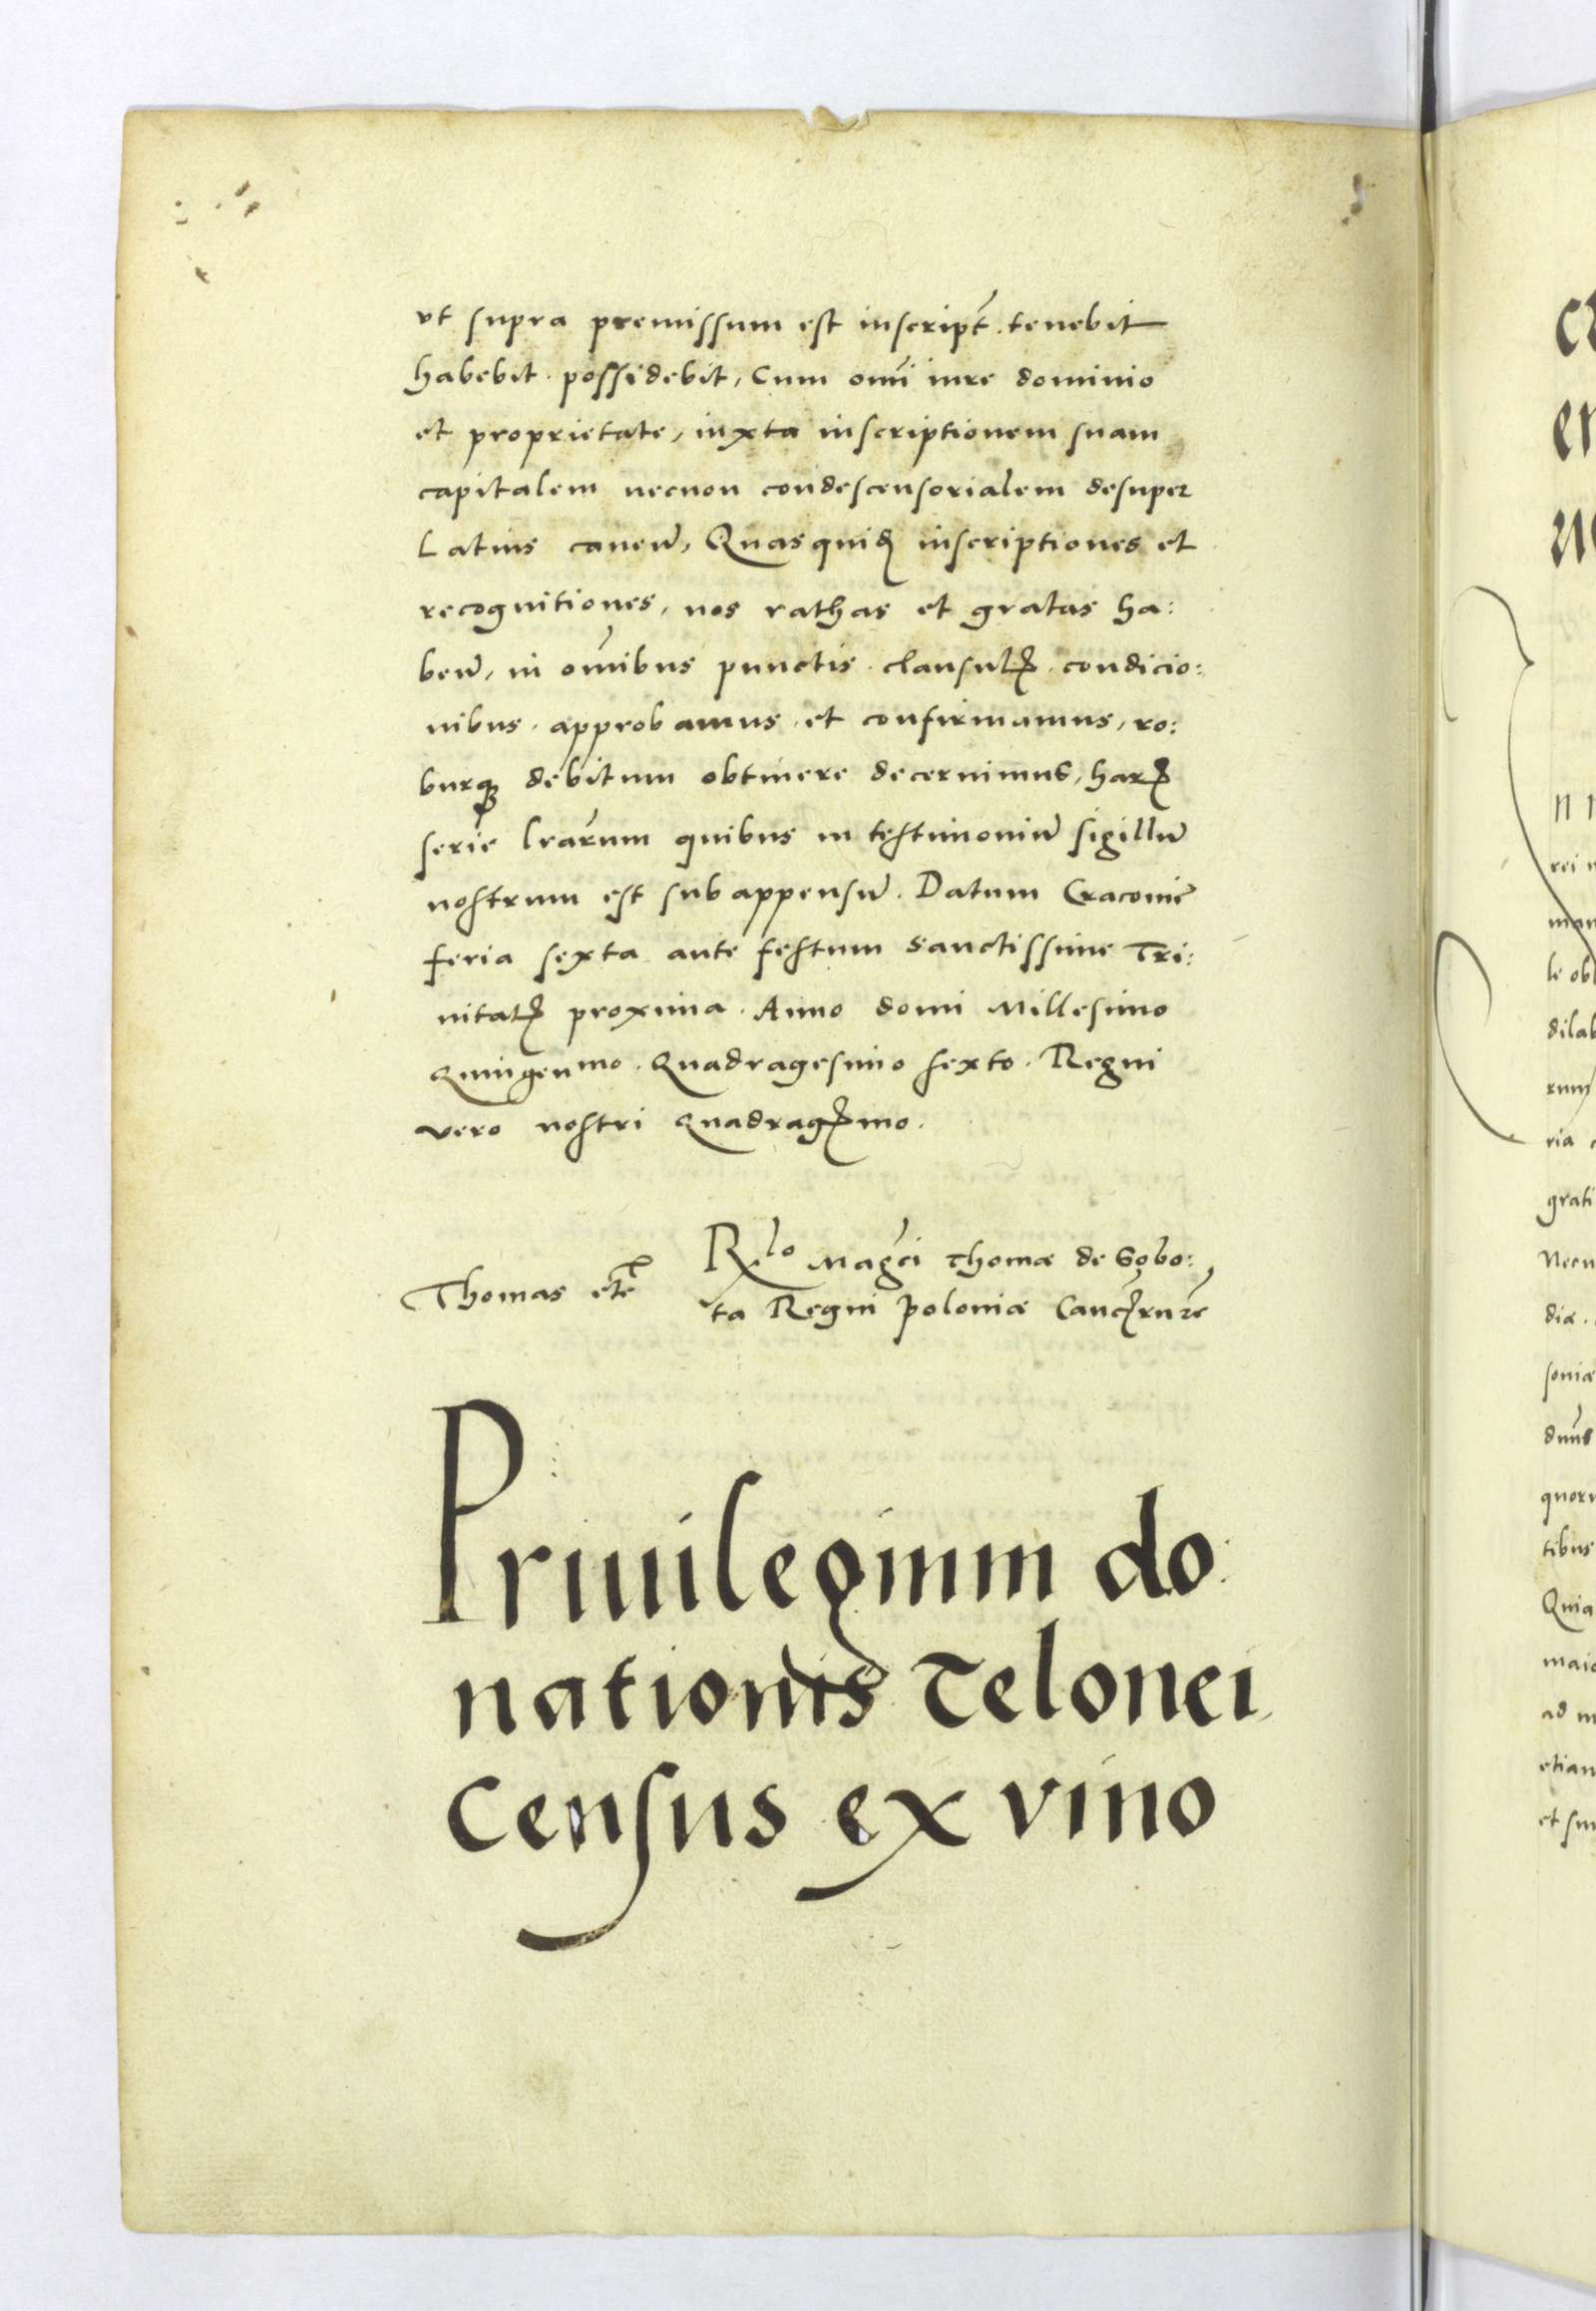 vt supra premissum est inscript̃. tenebit
habebit. possidebit, Cum omĩ iure dominio
et proprietate, iuxta inscriptionem suam
capitalem necnon condescensorialem desuper
Latius caneñ, Quasquidꝫ inscriptiones et
recognitiones, nos rathas et gratas ha:
beñ, in om̃ibus punctis. clausulꝭ. condicio:
nibus. approbamus. et confirmamus, ro:
burqꝫ debitum obtinere decernimus, harꝭ
serie lr̃arum quibus in testimoniũ sigillũ
nostrum est subappensũ. Datum Cracouie
feria sexta ante festum sanctissime Tri:
nitatꝭ proxima. Anno domi Millesimo
Quingenmo. Quadragesimo sexto. Regni
vero nostri Quadragꝭmo.
Thomas etc̃
Rlo Mag̃ci Thomæ de Sobo:
ta Regni Poloniæ
Priuilegium do:
nationis Telonei,
Census ex vino
cr
er
n
rei
man
le ob
dilab
rum
ria
grati
Necn
diæ.
soniæ
quoru
tibus
Quia
maio
ad m
etiam
et su